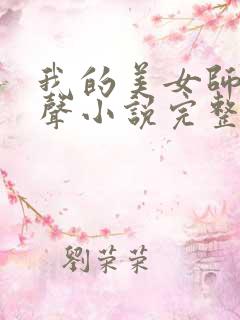 我的美女師
聲小說完整
劉荣荣